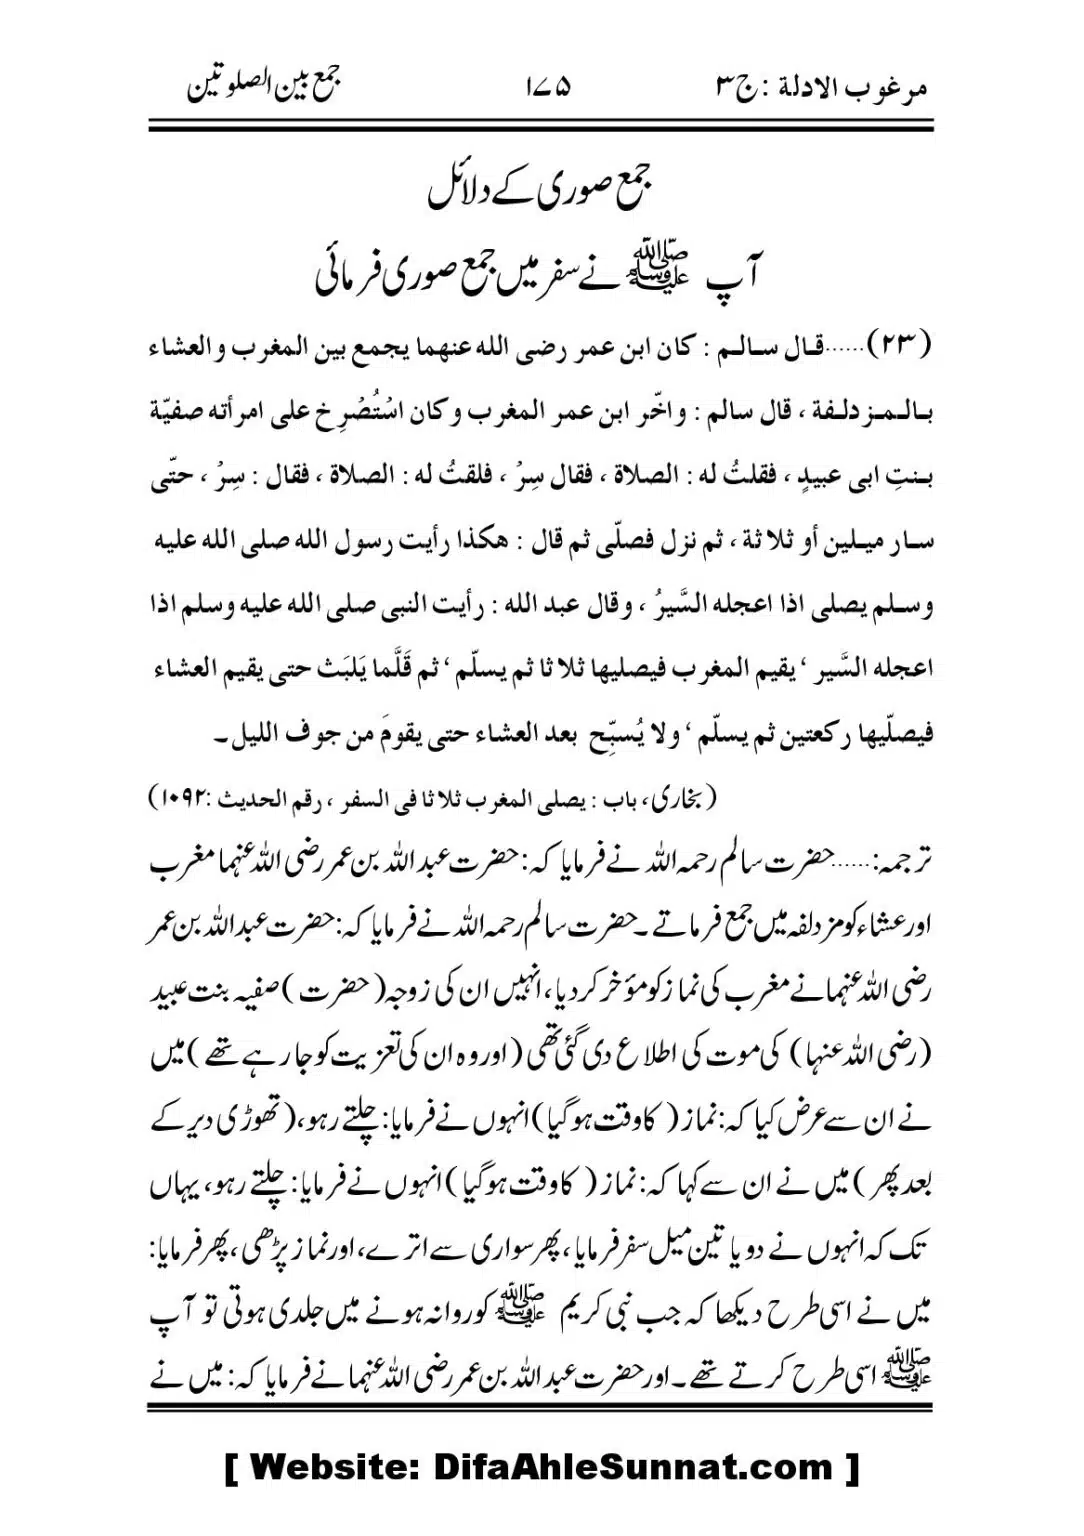 مرغوب الادلة : ج ۳ ۱۷۵ جمع بین الصلوتین
جمع صوری کے دلائل
آپ ﷺ نے سفر میں جمع صوری فرمائی
(۲۳)......قال سالم : کان ابن عمر رضی الله عنهما یجمع بین المغرب والعشاء
بالمزدلفة ، قال سالم : واخّر ابن عمر المغرب وکان اسْتُصْرِخ علی امرأته صفیّة
بنتِ ابی عبیدٍ ، فقلتُ له : الصلاة ، فقال سِرْ ، فلقتُ له : الصلاة ، فقال : سِرْ ، حتّی
سار میلین أو ثلاثة ، ثم نزل فصلّی ثم قال : هکذا رأیت رسول الله صلی الله علیه
وسلم یصلی اذا اعجله السَّیرُ ، وقال عبد الله : رأیت النبی صلی الله علیه وسلم اذا
اعجله السَّیر ، یقیم المغرب فیصلیها ثلاثا ثم یسلّم ، ثم قَلَّما یَلبَث حتی یقیم العشاء
فیصلّیها رکعتین ثم یسلّم ، ولا یُسبِّح بعد العشاء حتی یقومَ من جوف اللیل۔
(بخاری، باب : یصلی المغرب ثلاثا فی السفر ، رقم الحدیث :۱۰۹۲)
ترجمہ:......حضرت سالم رحمہ اللہ نے فرمایا کہ: حضرت عبد اللہ بن عمر رضی اللہ عنہما مغرب
اور عشاء کو مزدلفہ میں جمع فرماتے۔ حضرت سالم رحمہ اللہ نے فرمایا کہ: حضرت عبد اللہ بن عمر
رضی اللہ عنہما نے مغرب کی نماز کو مؤخر کر دیا، انہیں ان کی زوجہ (حضرت) صفیہ بنت عبید
(رضی اللہ عنہا) کی موت کی اطلاع دی گئی تھی (اور وہ ان کی تعزیت کو جا رہے تھے) میں
نے ان سے عرض کیا کہ: نماز (کا وقت ہو گیا) انہوں نے فرمایا: چلتے رہو، (تھوڑی دیر کے
بعد پھر) میں نے ان سے کہا کہ: نماز (کا وقت ہو گیا) انہوں نے فرمایا: چلتے رہو، یہاں
تک کہ انہوں نے دو یا تین میل سفر فرمایا، پھر سواری سے اترے، اور نماز پڑھی، پھر فرمایا:
میں نے اسی طرح دیکھا کہ جب نبی کریم ﷺ کو روانہ ہونے میں جلدی ہوتی تو آپ
ﷺ اسی طرح کرتے تھے۔ اور حضرت عبد اللہ بن عمر رضی اللہ عنہما نے فرمایا کہ: میں نے
[ Website: DifaAhleSunnat.com ]